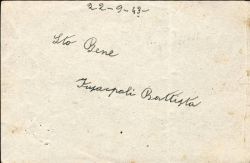 22-9-43-
Sto Bene
Battista